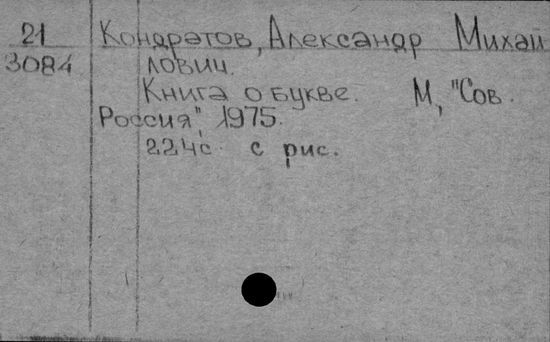 21 Кондратов, Александр Михай
3084 лович.
Книга о букве. М, "Сов.
Россия", 1975.
224с. с рис.